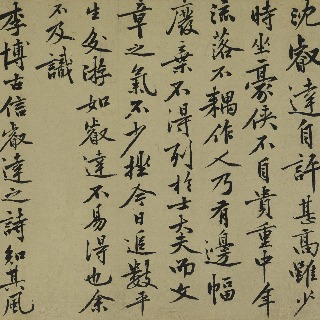 沈叡達自許甚高雖少
時坐豪俠不自貴重中年
流落不耦作人乃有邊幅
廢棄不得列於士大夫而文
章之氣不少挫今日追數平
生交游如叡達不易得也余
不及識
李博古信叡達之詩知其風